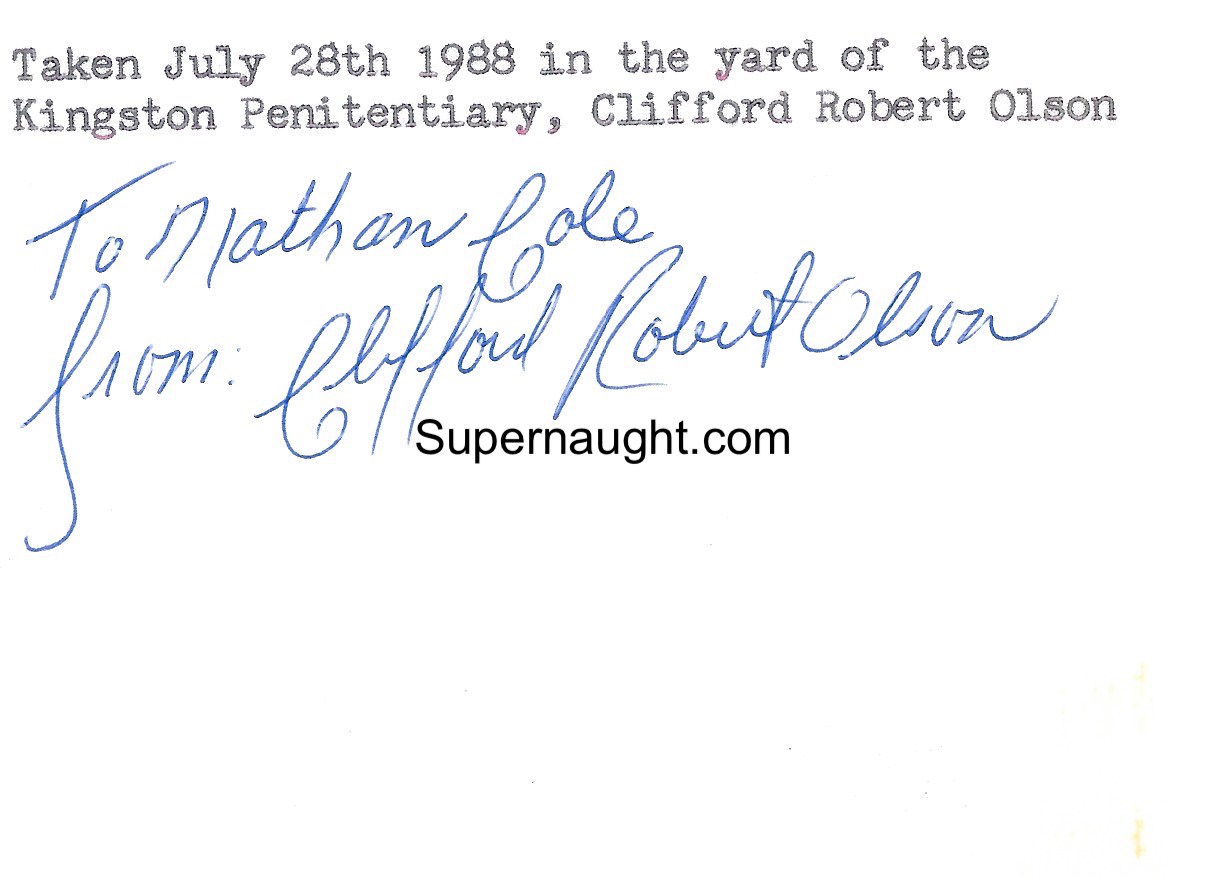 Taken July 28th 1988 in the yard of the
Kingston Penitentiary, Clifford Robert Olson
To Nathan Cole
from: Clifford Robert Olson
Supernaught.com